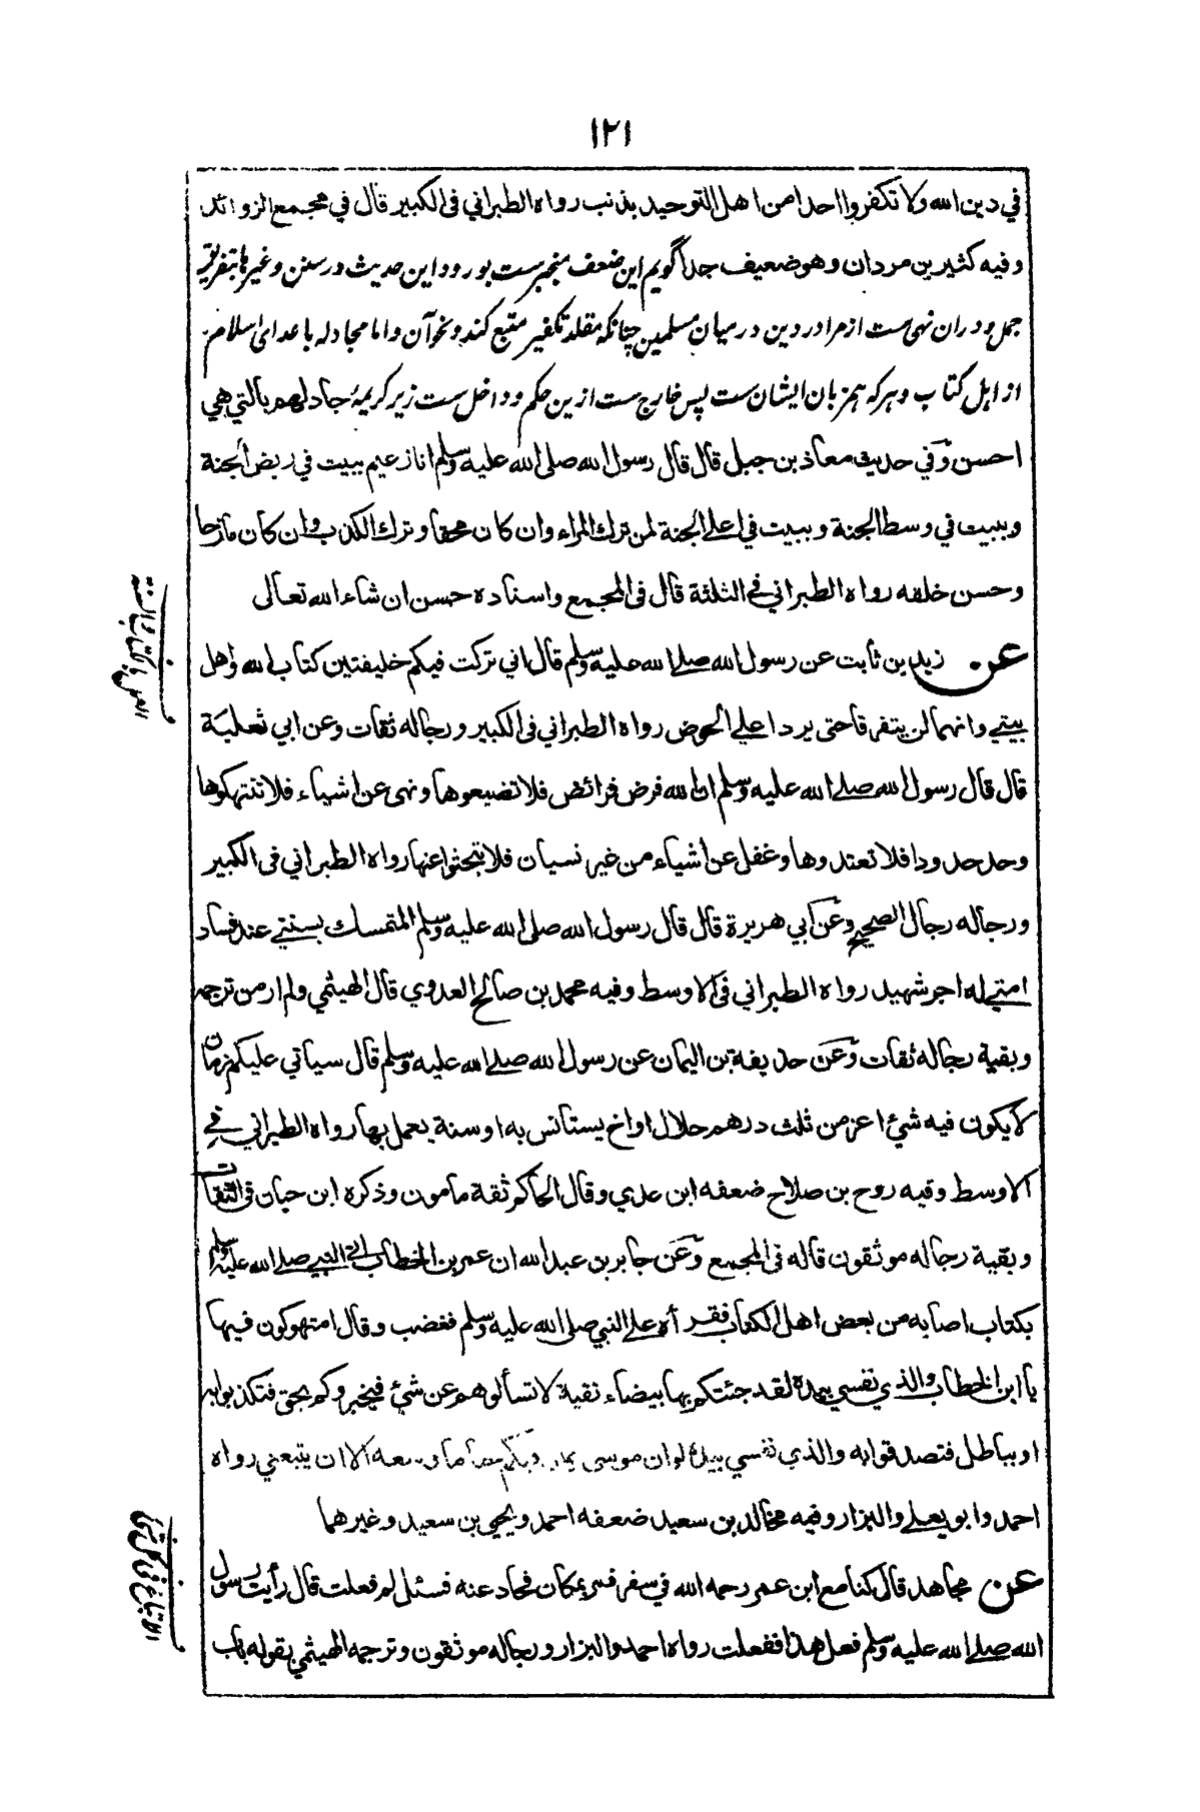 ١٢١
في دين الله ولا تكفروا احدا من اهل التوحيد بذنب رواه الطبراني فى الكبير قال في مجمع الزوائد
وفيه كثير بن مردان وهو ضعيف جدا گويم اين ضعف منجبرست بورود اين حديث در سنن وغيرها بتفريق
جمل ودران نهى ست از مرا در دين درميان مسلمين چنانكه مقلد تكفير متبع كند ونحو آن واما مجادله با عداى اسلام
از اهل كتاب وهركه همزبان ايشان ست پس خارج ست ازين حكم وداخل ست زير كريمۀ جادلهم بالتي هي
احسن وفي حديث معاذ بن جبل قال قال رسول الله صلى الله عليه وسلم انا زعيم ببيت في ربض الجنة
وببيت في وسط الجنة وببيت في اعلى الجنة لمن ترك المراء وان كان محقا وترك الكذب وان كان مازحا
وحسن خلقه رواه الطبراني في الثلثة قال فى المجمع واسناده حسن ان شاء الله تعالى
عن زيد بن ثابت عن رسول الله صلى الله عليه وسلم قال اني تركت فيكم خليفتين كتاب الله واهل
بيتي وانهما لن يتفرقا حتى يردا على الحوض رواه الطبراني فى الكبير ورجاله ثقات وعن ابي ثعلبة
قال قال رسول الله صلى الله عليه وسلم ان الله فرض فرائض فلا تضيعوها ونهى عن اشياء فلا تنتهكوها
وحد حدودا فلا تعتدوها وغفل عن اشياء من غير نسيان فلا تبحثوا عنها رواه الطبراني فى الكبير
ورجاله رجال الصحيح وعن ابي هريرة قال قال رسول الله صلى الله عليه وسلم المتمسك بسنتي عند فساد
امتي له اجر شهيد رواه الطبراني فى الاوسط وفيه محمد بن صالح العدوي قال الهيثمي ولم ار من ترجمه
وبقية رجاله ثقات وعن حذيفة بن اليمان عن رسول الله صلى الله عليه وسلم قال سياتي عليكم زمان
لا يكون فيه شئ اعز من ثلث درهم حلال او اخ يستانس به او سنة يعمل بها رواه الطبراني في
الاوسط وفيه روح بن صلاح ضعفه ابن عدي وقال الحاكم ثقة مامون وذكره ابن حبان فى الثقات
وبقية رجاله موثقون قاله فى المجمع وعن جابر بن عبد الله ان عمر بن الخطاب اتى النبي صلى الله عليه وسلم
بكتاب اصابه من بعض اهل الكتاب فقرأه على النبي صلى الله عليه وسلم فغضب وقال امتهوكون فيها
يا ابن الخطاب والذي نفسي بيده لقد جئتكم بها بيضاء نقية لا تسألوهم عن شئ فيخبروكم بحق فتكذبوا به
او بباطل فتصدقوا به والذي نفسي بيده لوان موسى ما وسعه الا ان يتبعني رواه
احمد وابو يعلى والبزار وفيه مخالد بن سعيد ضعفه احمد ويحيى بن سعيد وغيرهما
عن مجاهد قال كنا مع ابن عمر رحمه الله في سفر فمر بمكان فحاد عنه فسئل لم فعلت قال رأيت رسول
الله صلى الله عليه وسلم فعل هذا ففعلت رواه احمد والبزار ورجاله موثقون وترجمه الهيثمي بقوله باب
العمل بالكتاب والسنة
الاتباع في كل شئ